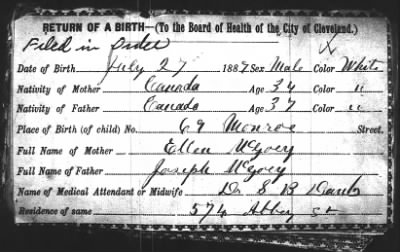 RETURN OF A BIRTH—(To the Board of Health of the City of Cleveland.)
Filed in order X
Date of Birth July 27 1889 Sex Male Color White
Nativity of Mother Canada Age 34 Color "
Nativity of Father Canada Age 37 Color "
Place of Birth (of child) No. 69 Monroe Street.
Full Name of Mother Ellen McGoey
Full Name of Father Joseph McGoey
Name of Medical Attendant or Midwife Dr S B
Residence of same 574 Abbey St